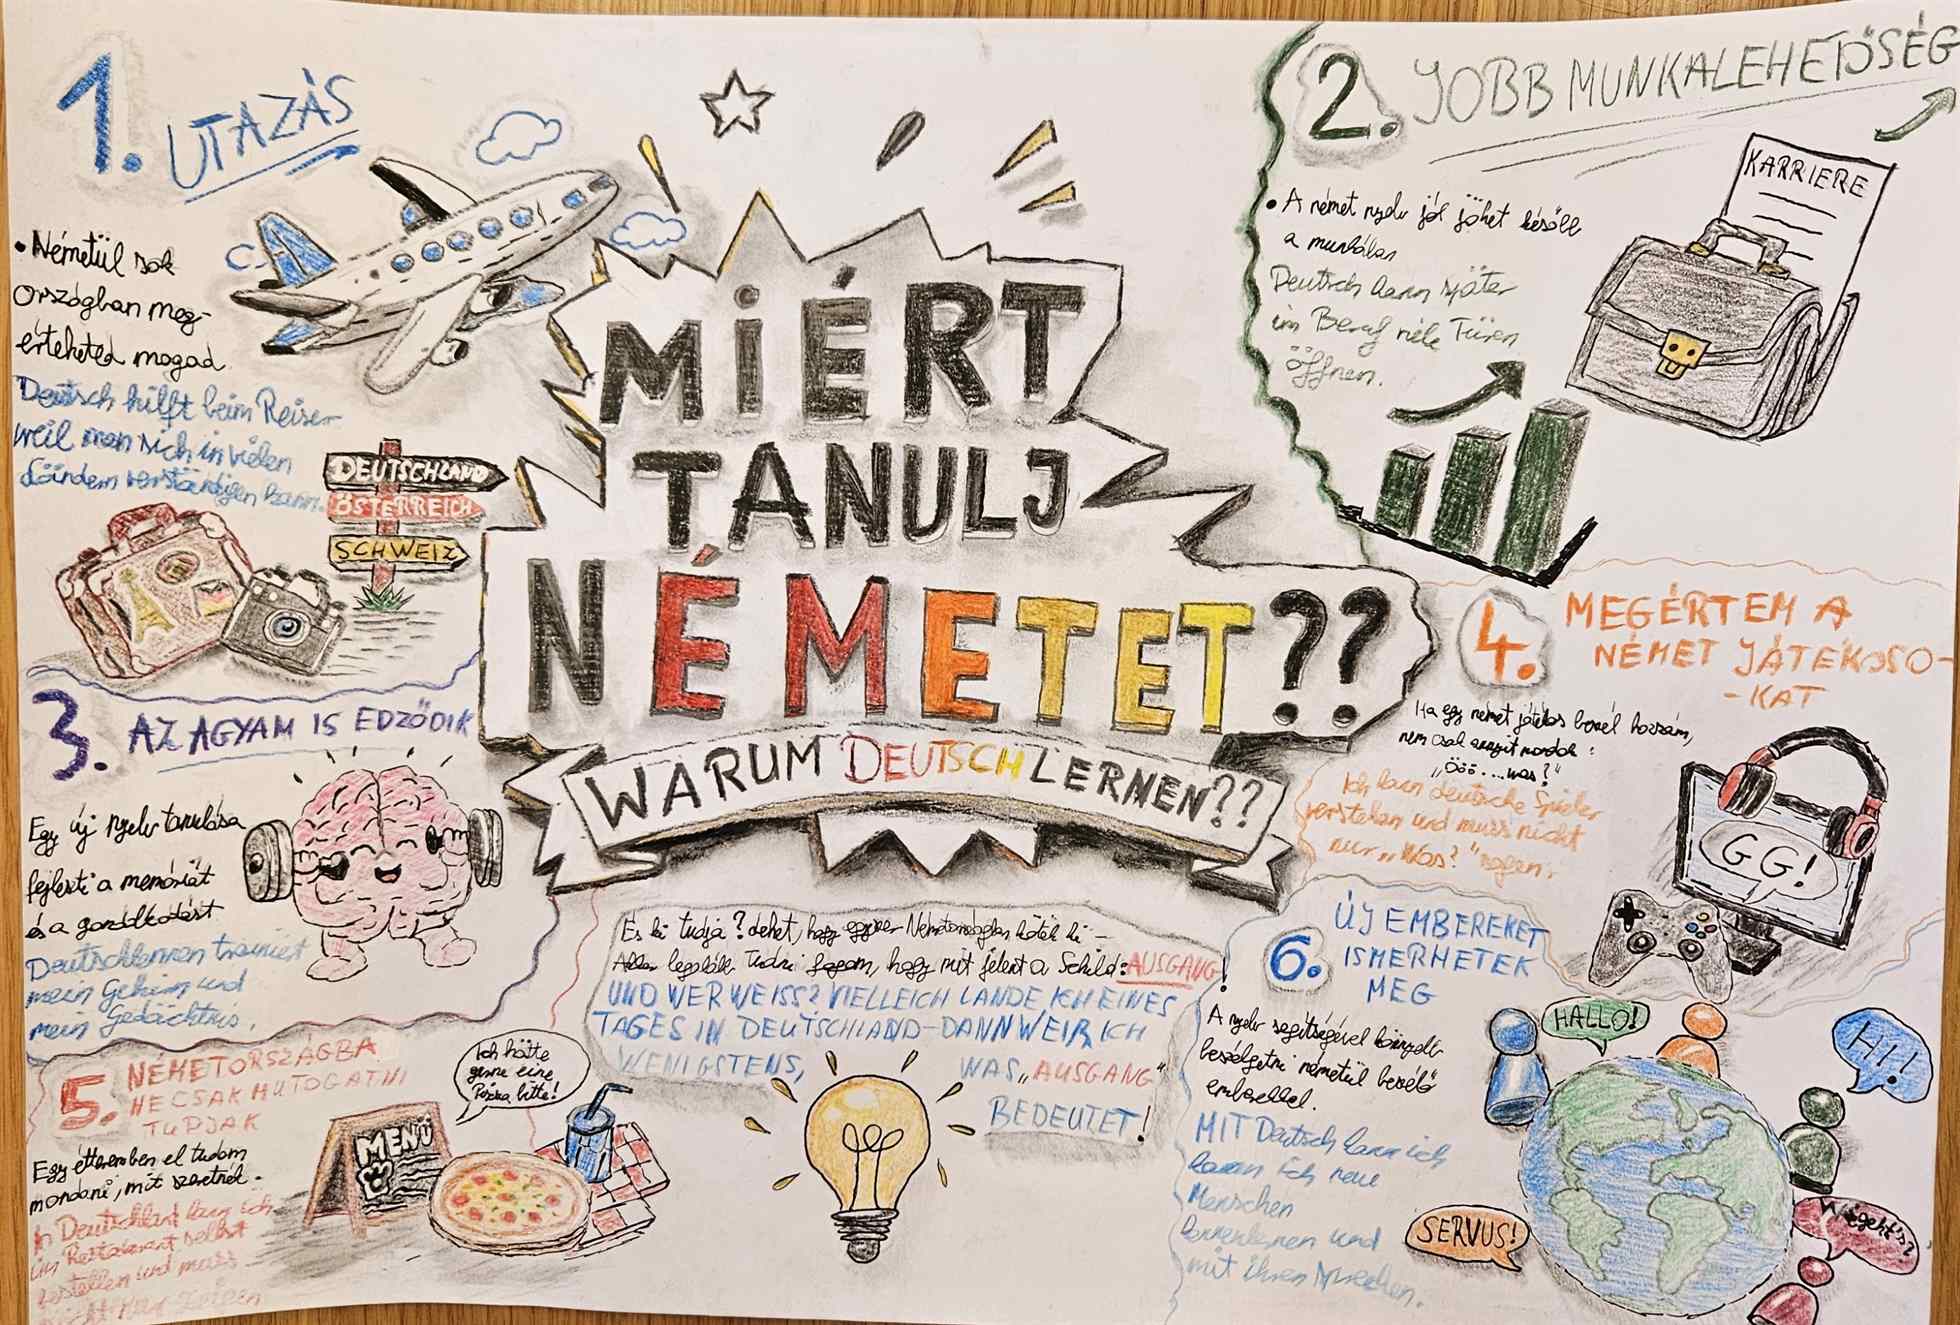 1. UTAZÁS
• Németül sok
országban meg-
értheted magad
Deutsch hilft beim Reisen
weil man sich in vielen
Ländern verständigen kann.
DEUTSCHLAND
ÖSTERREICH
SCHWEIZ
MIÉRT
TANULJ
NÉMETET??
WARUM DEUTSCH LERNEN??
2. JOBB MUNKALEHETŐSÉG
• A német nyelv jól jöhet később
a munkában
Deutsch kann später
im Beruf viele Türen
öffnen.
KARRIERE
3. AZ AGYAM IS EDZŐDIK
Egy új nyelv tanulása
fejleszti a memóriát
és a gondolkodást
Deutschlernen trainiert
mein Gehirn und
mein Gedächtnis.
4. MEGÉRTEM A
NÉMET JÁTÉKOSO-
-KAT
Ha egy német játékos beszél hozzám,
nem csak annyit mondok:
„Ööö....was?"
Ich kann deutsche Spieler
verstehen und muss nicht
nur „Was?" sagen.
GG!
5. NÉMETORSZÁGBA
NE CSAK MUTOGATNI
TUDJAK
Egy étteremben el tudom
mondani, mit szeretnék.
In Deutschland kann ich
im Restaurant selbst
bestellen und muss
nicht nur zeigen
MENÜ
Ich hätte
gerne eine
Pizza bitte!
És ki tudja? Lehet, hogy egyszer Németországban kötök ki –
legalább tudni fogom, hogy mit jelent a Schild: AUSGANG!
UND WER WEISS? VIELLEICH LANDE ICH EINES
TAGES IN DEUTSCHLAND-DANN WEIR ICH
WENIGSTENS, WAS „AUSGANG"
BEDEUTET!
6. ÚJ EMBEREKET
ISMERHETEK
MEG
A nyelv segítségével könnyebb
beszélgetni németül beszélő
emberekkel.
MIT Deutsch kann ich
kann ich neue
Menschen
kennenlernen und
mit ihnen sprechen.
HALLO!
HI!
SERVUS!
Wie geht's?